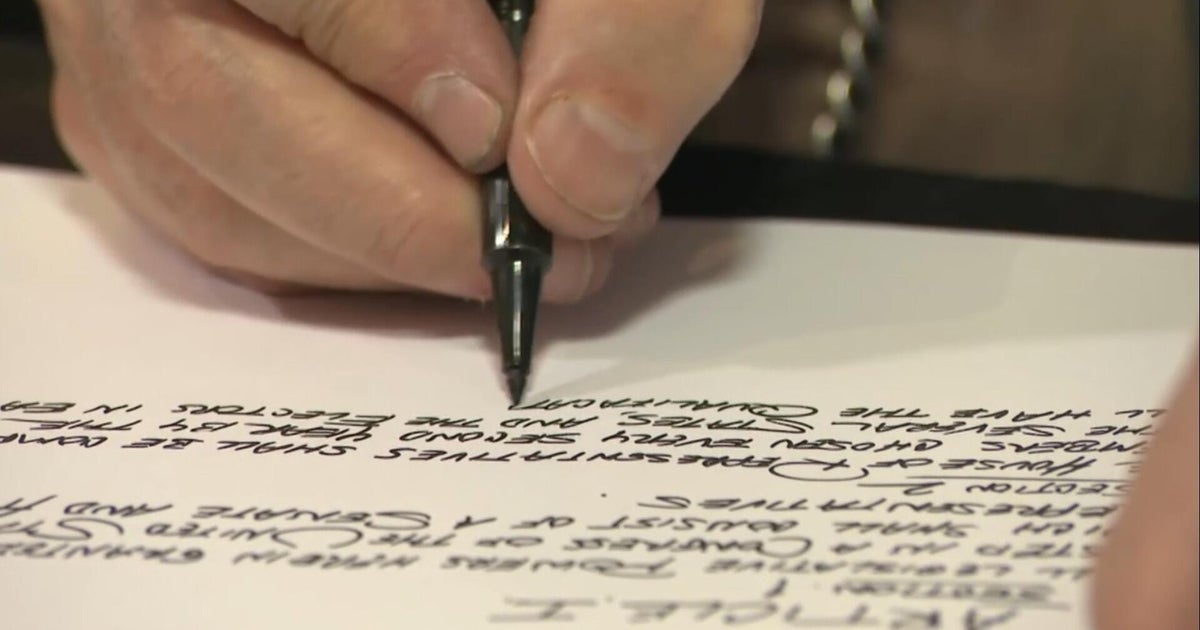 ARTICLE I
SECTION 1
LL LEGISLATIVE POWERS HEREIN GRANTED
STED IN A CONGRESS OF THE UNITED STA
ICH SHALL CONSIST OF A SENATE AND H
EPRESENTATIVES
ECTION 2
E HOUSE OF REPRESENTATIVES SHALL BE COMP
EMBERS CHOSEN EVERY SECOND YEAR BY THE
HE SEVERAL STATES, AND THE ELECTORS IN EA
LL HAVE THE QUALIFACATI